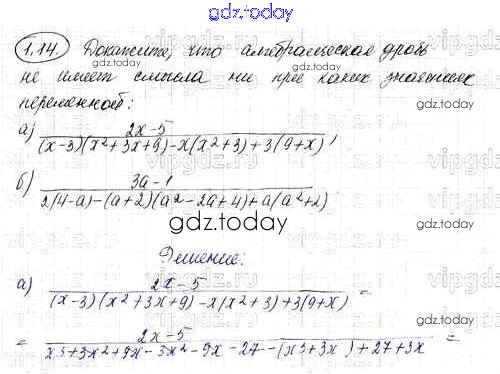 gdz.today
1.14. Докажите, что алгебраическая дробь
не имеет смысла ни при каких значениях
переменной:
а) 2x-5
(x-3)(x²+3x+9)-x(x²+3)+3(9+x),
б) 3a-1
2(4-a)-(a+2)(a²-2a+4)+a(a²+2)
gdz.today
Решение:
а) 2x-5
(x-3)(x²+3x+9)-x(x²+3)+3(9+x) =
= 2x-5
x3+3x²+9x-3x²-9x-27-(x3+3x)+27+3x =